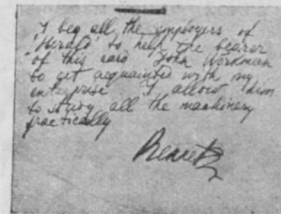 I beg all the employers of
"Herald" to help the bearer
of this card John Workman
to get acquainted with my
enterprise I allow him
to study all the machinery
practically
Bennett